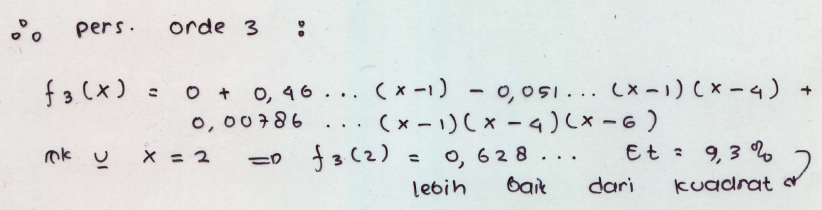 ∴ pers. orde 3 :
f3(x) = 0 + 0,46... (x-1) - 0,051... (x-1)(x-4) +
0,00786 ... (x-1)(x-4)(x-6)
mk u x = 2 => f3(2) = 0,628... Et = 9,3%
lebih baik dari kuadrat